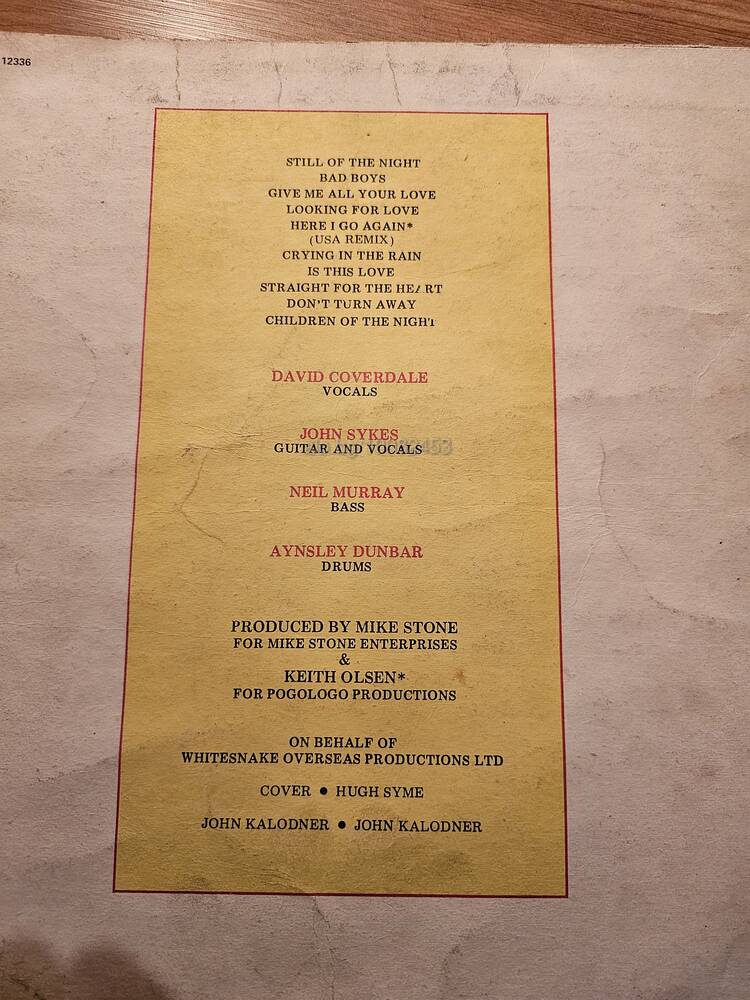 12336
STILL OF THE NIGHT
BAD BOYS
GIVE ME ALL YOUR LOVE
LOOKING FOR LOVE
HERE I GO AGAIN*
(USA REMIX)
CRYING IN THE RAIN
IS THIS LOVE
STRAIGHT FOR THE HEART
DON'T TURN AWAY
CHILDREN OF THE NIGHT
DAVID COVERDALE
VOCALS
JOHN SYKES
GUITAR AND VOCALS
NEIL MURRAY
BASS
AYNSLEY DUNBAR
DRUMS
PRODUCED BY MIKE STONE
FOR MIKE STONE ENTERPRISES
&
KEITH OLSEN*
FOR POGOLOGO PRODUCTIONS
ON BEHALF OF
WHITESNAKE OVERSEAS PRODUCTIONS LTD
COVER ● HUGH SYME
JOHN KALODNER ● JOHN KALODNER